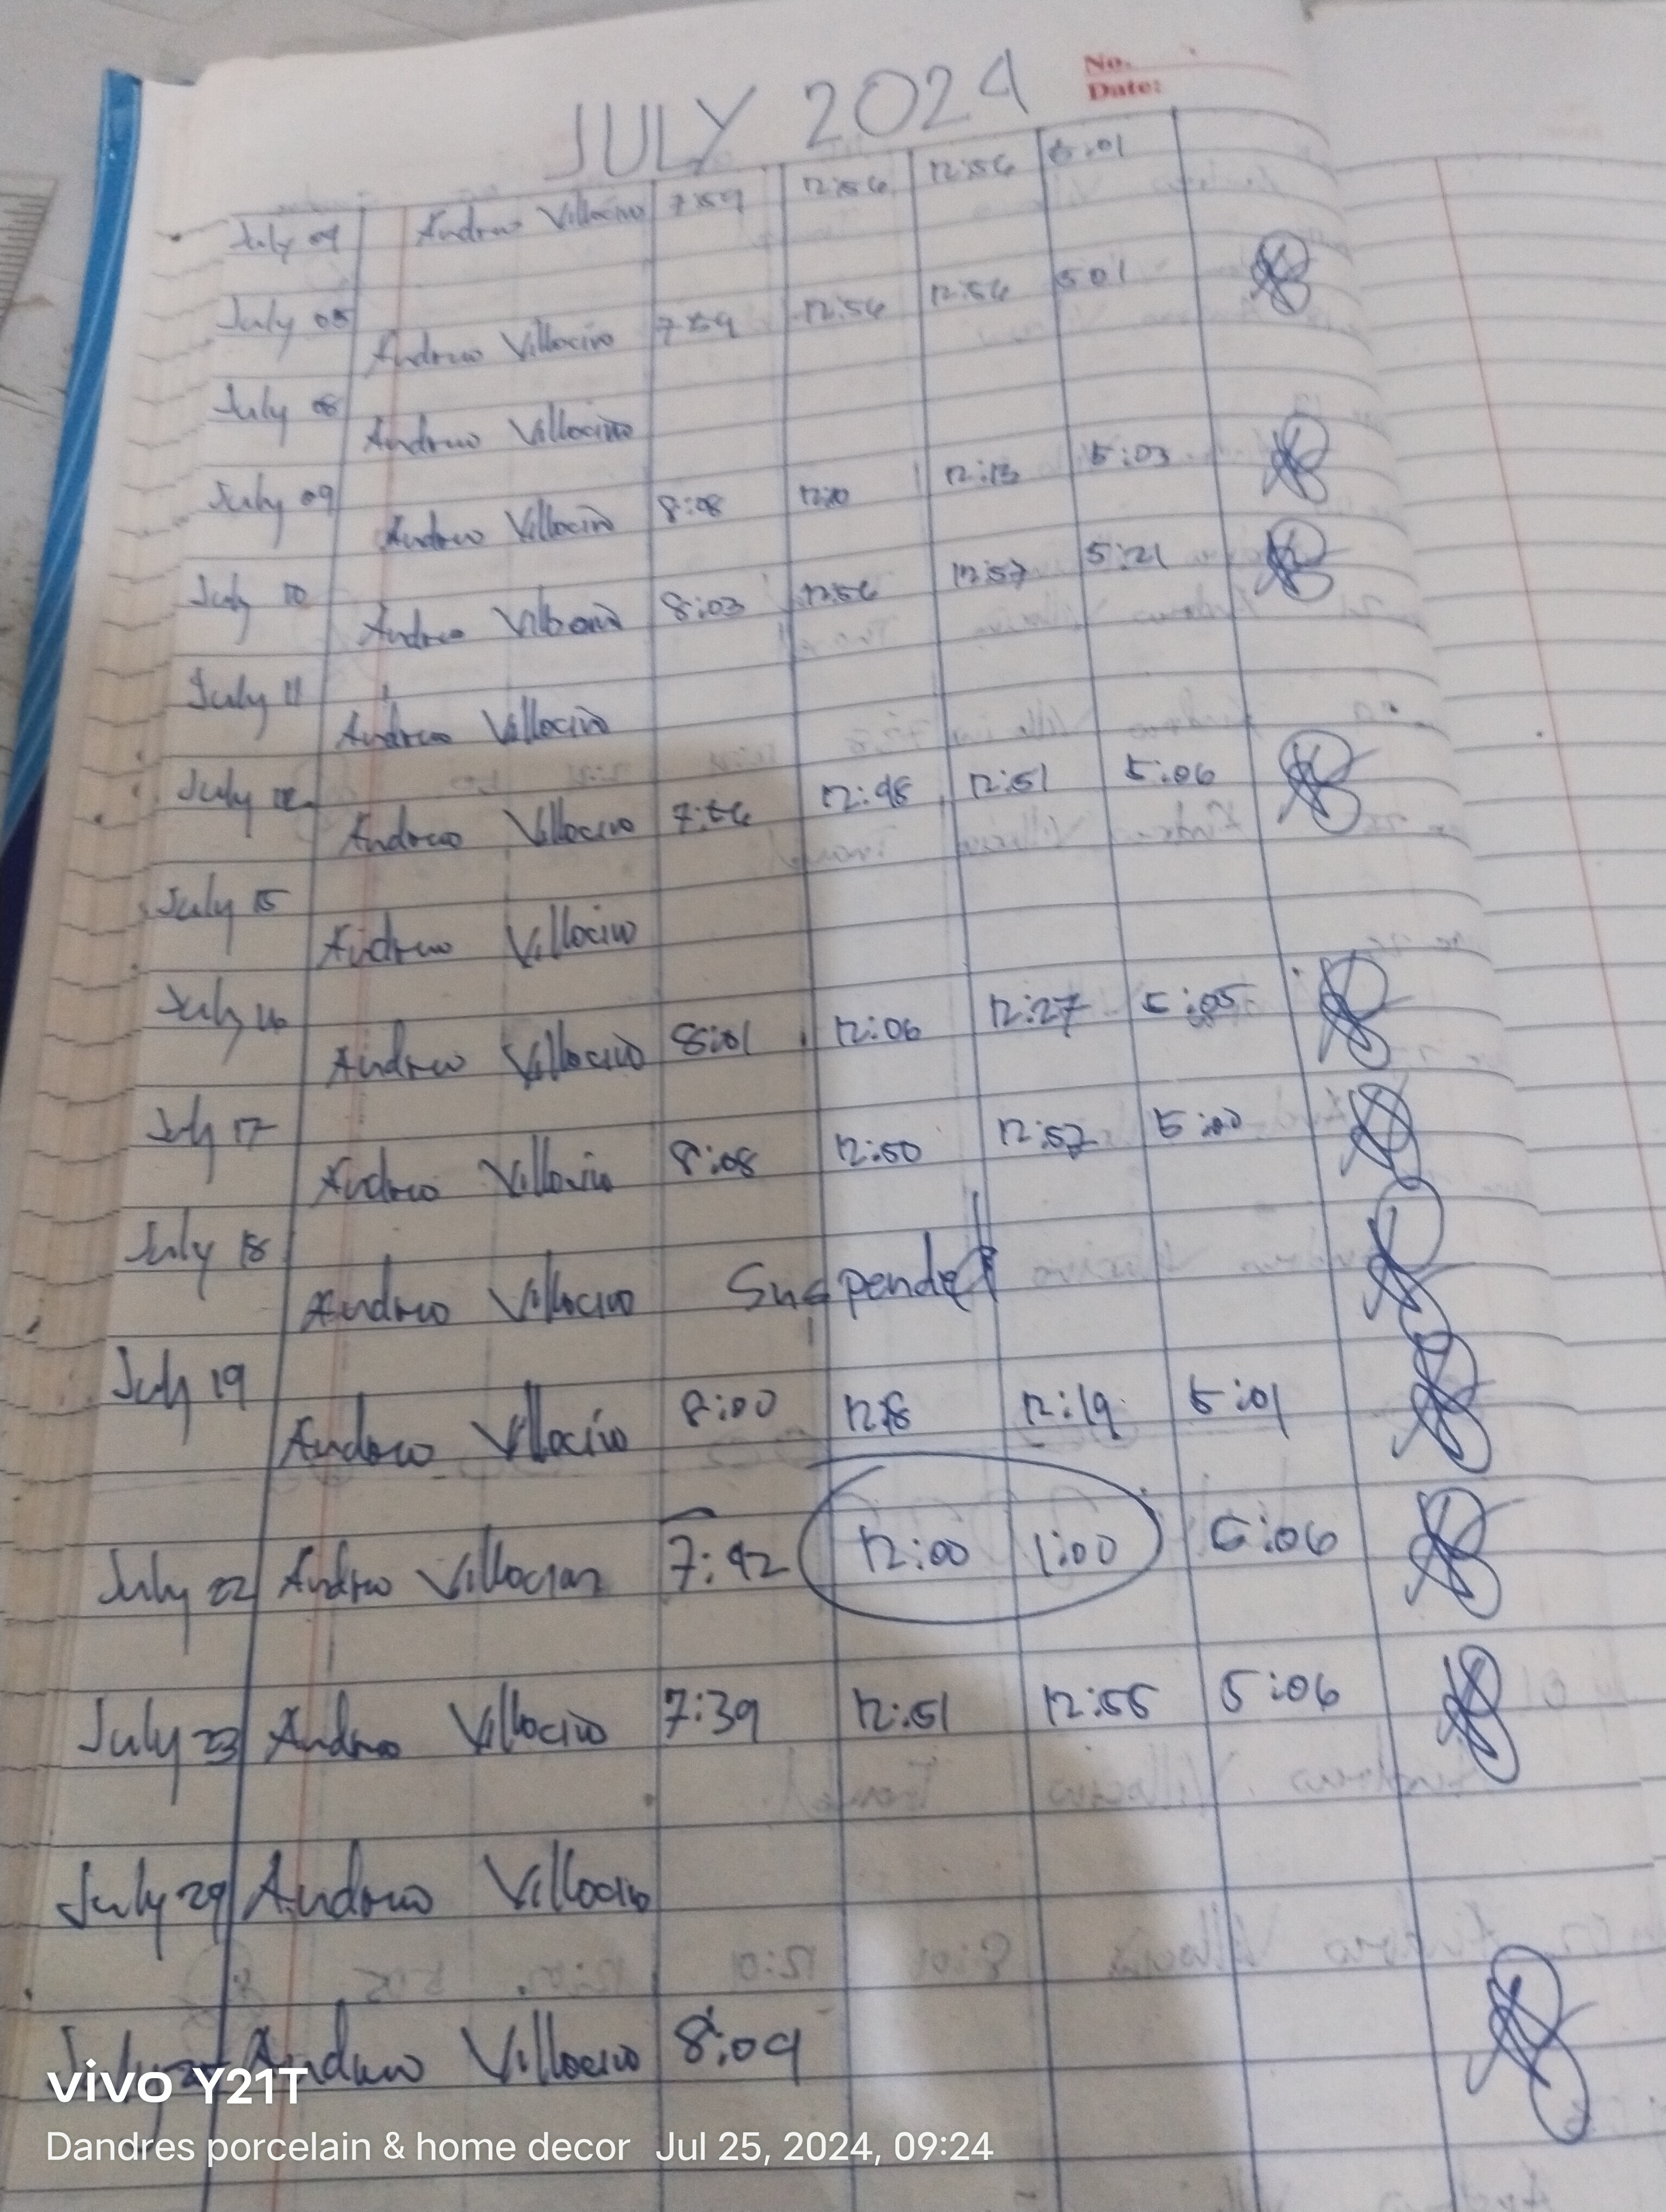 JULY 2024
No.
Date:
July 04 Andrew Villocino 7:59 12:56 12:56 5:01
July 05 Andrew Villocino 7:59 12:56 12:56 5:01
July 08 Andrew Villocino
July 09 Andrew Villocino 8:08 12:10 12:13 5:03
July 10 Andrew Villocino 8:03 12:56 12:57 5:21
July 11 Andrew Villocino
July 12 Andrew Villocino 7:56 12:48 12:51 5:06
July 15 Andrew Villocino
July 16 Andrew Villocino 8:01 12:06 12:27 5:05
July 17 Andrew Villocino 8:08 12:50 12:57 5:00
July 18 Andrew Villocino Suspended
July 19 Andrew Villocino 8:00 12:18 12:19 5:01
July 22 Andrew Villocino 7:42 12:00 1:00 5:06
July 23 Andrew Villocino 7:39 12:51 12:55 5:06
July 24 Andrew Villocino
July Andrew Villocino 8:04
vivo Y21T
Dandres porcelain & home decor Jul 25, 2024, 09:24